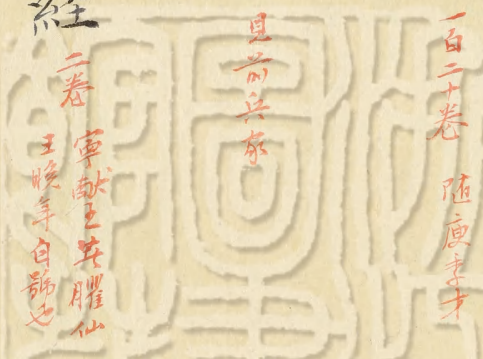 一百二十卷 隨庚季才
見前兵家
經
二卷 寧献王其臞仙
王晚年自號也